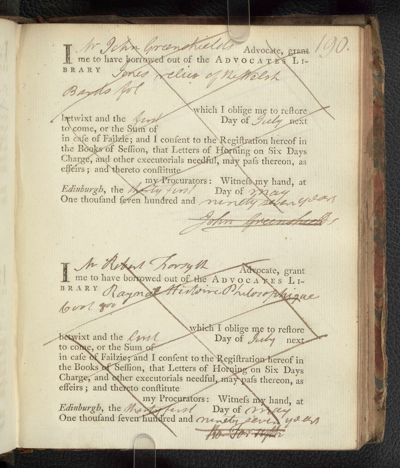 190.
I Mr John Greenshields Advocate, grant
me to have borrowed out of the ADVOCATES LI-
BRARY Jones relics of the Welsh
Bards fol
which I oblige me to reſtore
betwixt and the first Day of July next
to come, or the Sum of
in caſe of Failzie; and I conſent to the Regiſtration hereof in
the Books of Seſſion, that Letters of Horning on Six Days
Charge, and other executorials needful, may paſs thereon, as
effeirs; and thereto conſtitute
my Procurators: Witneſs my hand, at
Edinburgh, the thirty first Day of May
One thouſand ſeven hundred and ninety seven years
John Greenshields
I Mr Robert Forsyth Advocate, grant
me to have borrowed out of the ADVOCATES LI-
BRARY Raynal Histoire Philosophique
6 vol
which I oblige me to reſtore
betwixt and the first Day of July next
to come, or the Sum of
in caſe of Failzie; and I conſent to the Regiſtration hereof in
the Books of Seſſion, that Letters of Horning on Six Days
Charge, and other executorials needful, may paſs thereon, as
effeirs; and thereto conſtitute
my Procurators: Witneſs my hand, at
Edinburgh, the thirty first Day of May
One thouſand ſeven hundred and ninety seven years
Ro. Forsyth